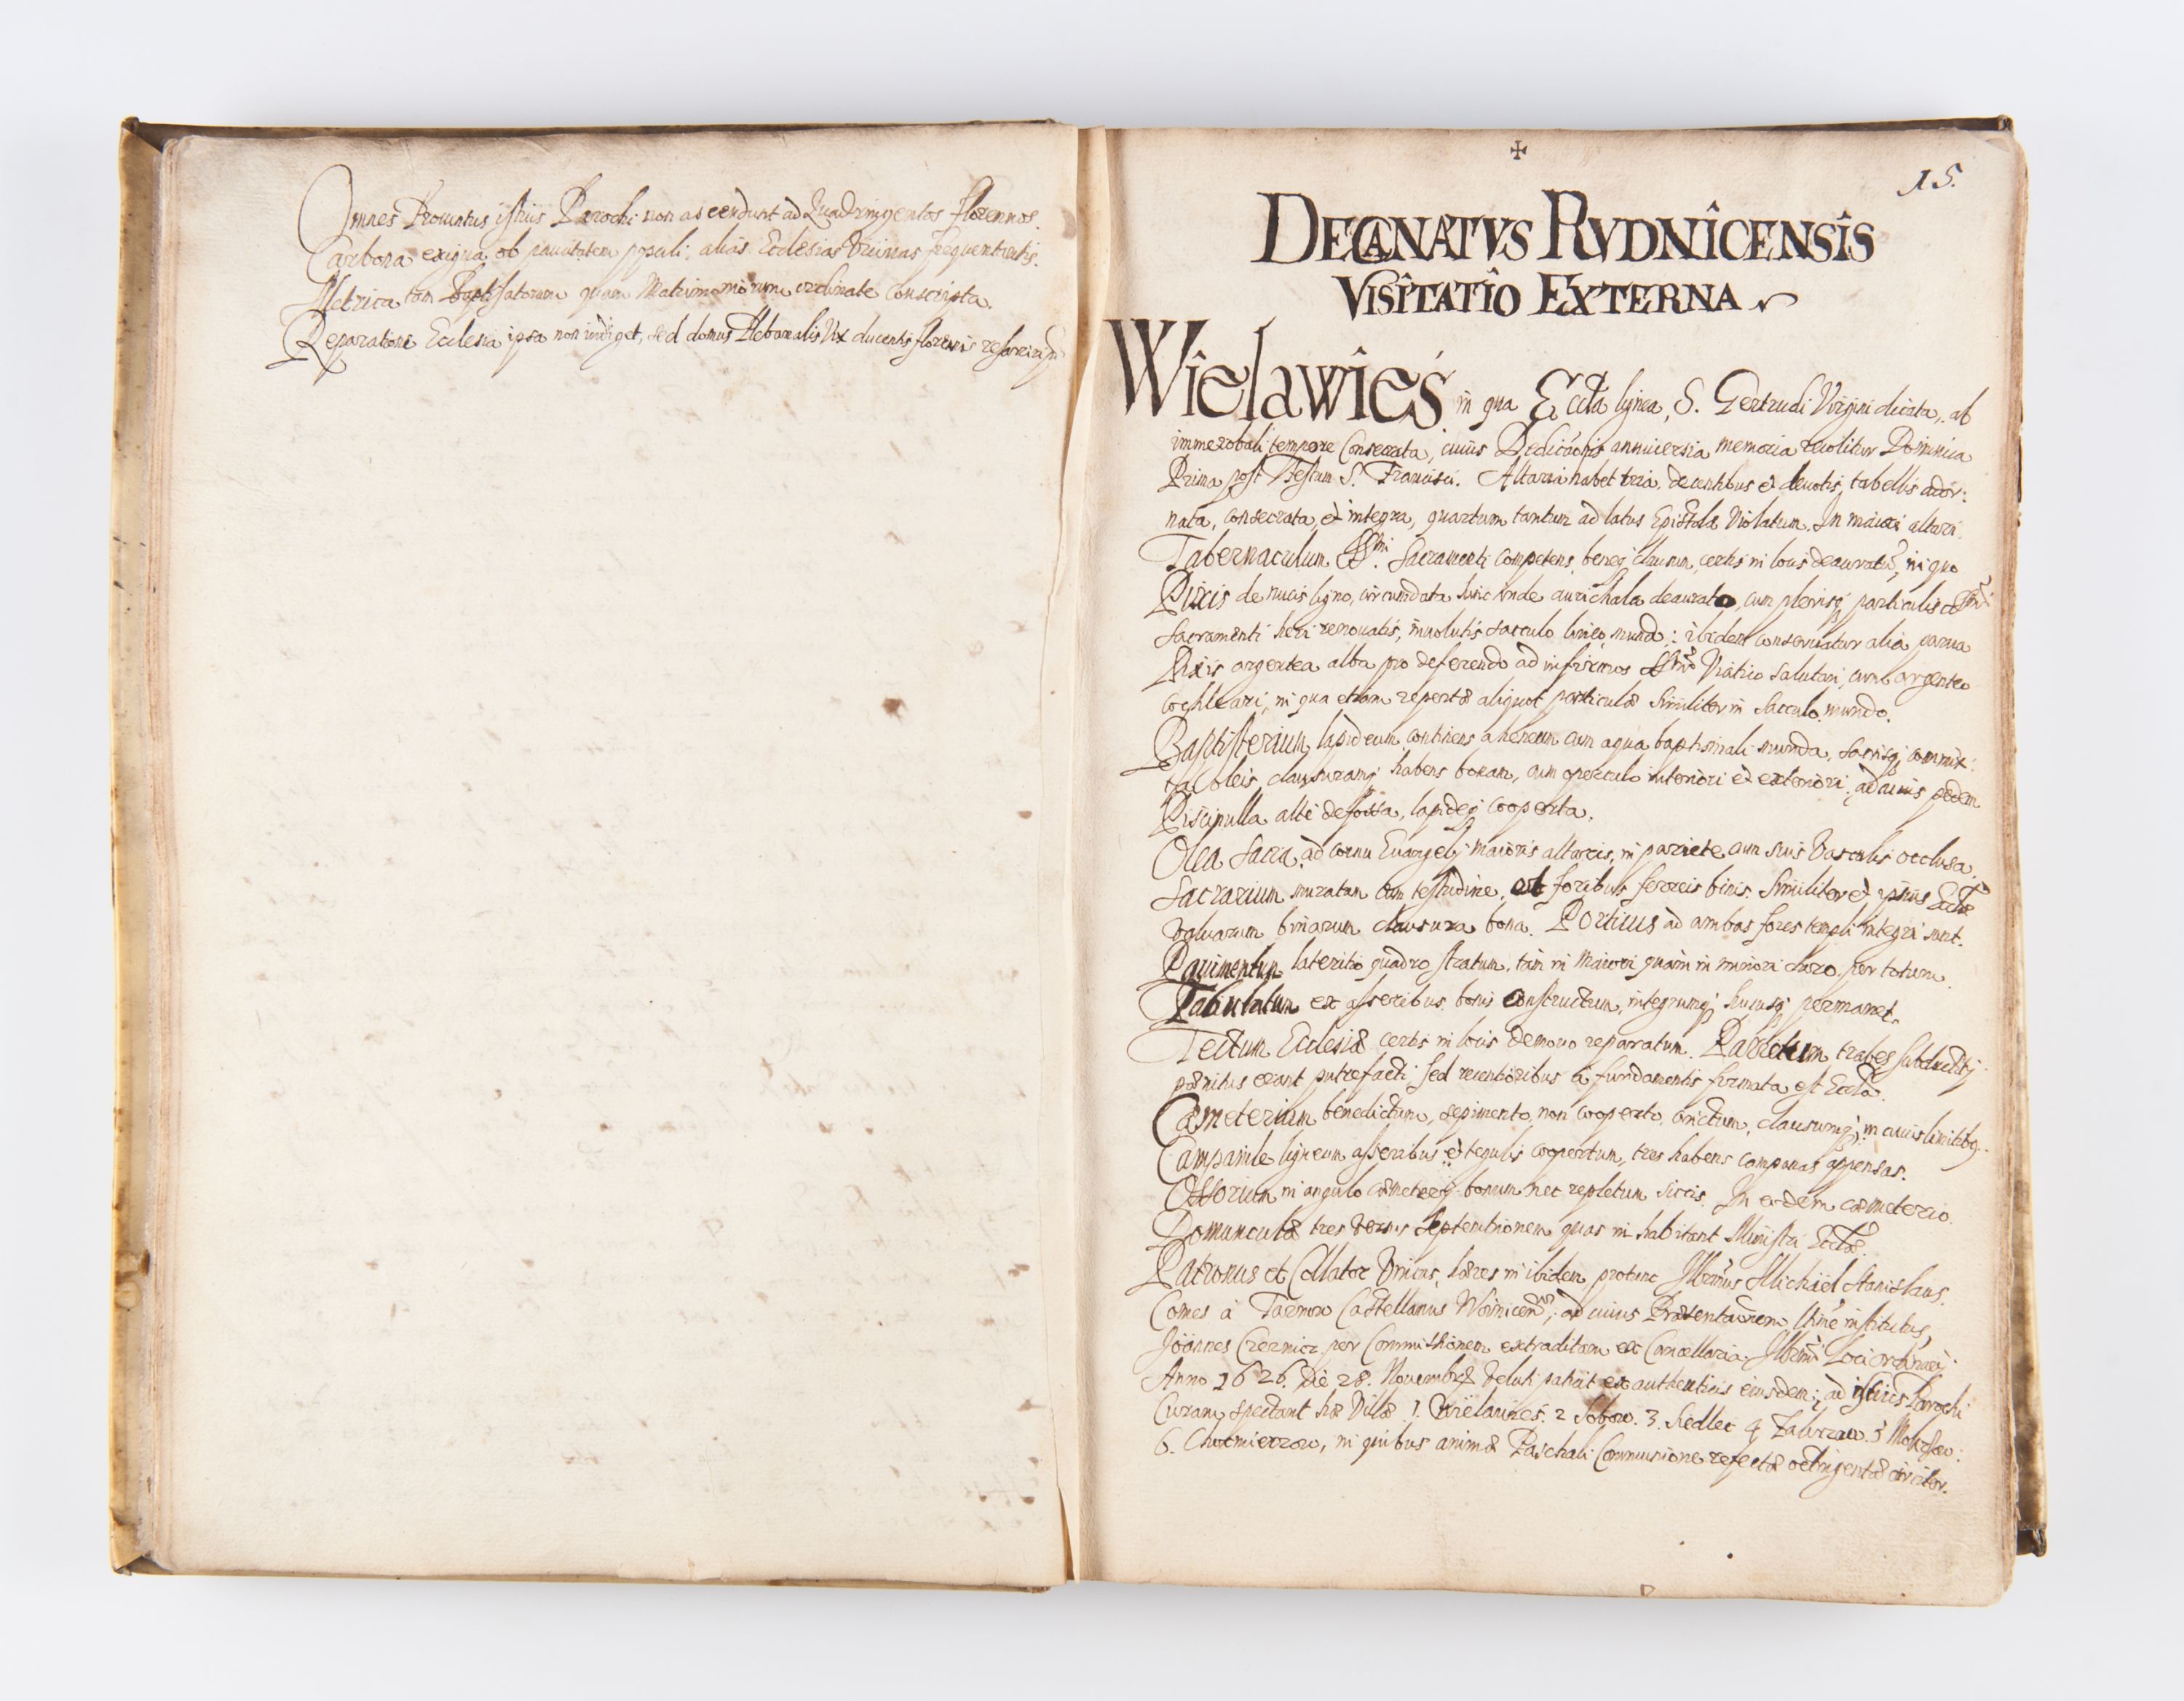 Omnes Prouentus istius Parochi non ascendunt ad Quadringentos florenos.
Carbona exigua ob paucitatem populi, alias Ecclesias Vicinas frequentantis.
Metrica tam Baptisatorum quam Matrimoniorum ordinate conscripta.
Reparatione Ecclesia ipsa non indiget, sed domus Plebanalis Vix ducentis florenis
15.
DECANATVS RVDNICENSIS
VISITATIO EXTERNA
Wielawieś in qua Eccła lignea, S. Gertrudi Virgini dicata, ab
immerobali tempore Consecrata, cuius Dedicãonis anniuersia memoria recolitur Dominica
Prima post Festum S. Francisci. Altaria habet tria decentibus et deuotis tabellis ador:
nata, consecrata et integra, quartum tantum ad latus Epistolæ Violatum. In maiori altari
Tabernaculum SSmi. Sacramenti competens, beneq clausum, certis in locis deauratũ, in quo
Pixis de nucis ligno, circumdata hinc inde aurichalco deaurato, cum plerisq particulis SSmi
Sacramenti heri renouatis, inuolutis sacculo lineo mundo: ibidem conseruatur alia parua
Pixis argentea alba pro deferendo ad infirmos SSmo Viatico salutari, cum argenteo
cochleari, in qua etiam repertæ aliquot particulæ similiter in sacculo mundo.
Baptisterium lapideum continens aheneum cum aqua baptismali munda, sacrisq commix:
ta Oleis, clausuramq habens bonam, cum operculo interiori et exteriori; ad cuius pedem
Piscinulla alte defossa, lapideq cooperta.
Olea Sacra ad cornu Euangelij maioris altaris, in pariete cum suis Vasculis occlusa.
Sacrarium muratum cum testudine, et foribus ferreis binis. Similiter et ipsius Eccłæ
Valuarum binarum clausura bona. Porticus ad ambas fores templi integri sunt.
Pauimentum lateritio quadro stratum, tam in Maiori quam in minori choro per totum.
Tabulatum ex asseribus bonis constructum, integrumq hucusq permanet.
Tectum Ecclesiæ certis in locis denouo reparatum. Parietum trabes
pænitus erant putrefacti sed recentioribus a fundamentis firmata est Eccła.
Cæmeterium benedictum, sepimento non cooperto cinctum, clausumq; in cuius limitibq.
Campanile ligneum asseribus et tegulis coopertum, tres habens campanas appensas.
Ossorium in angulo cæmeterij bonum nec repletum siccis. In eodem cæmeterio
Domunculæ tres versus Septentrionem quas in habitant Ministri Eccłæ.
Patronus et Collator Vnicus, hæres in ibidem protunc Illmus Michäel Stanislaus
Comes à Tarnow Castellanus Woinicen; ad cuius Præsentaõnem ltimè institutus
Joannes Czermicz per Commissionem extraditam ex Cancellaria Illmi Loci ordinarij
Anno 1626. Die 28. Nouembris Veluti patuit ex authenticis eiusdem; ad istius Parochi
Curam spectant hæ Villæ 1. Wielawieś. 2 Sobow. 3. Siedlec 4 Zakrzow. 5 Mokrzow:
6. Chmierzow, in quibus animæ Paschali Communione refectæ octingentæ circiter.